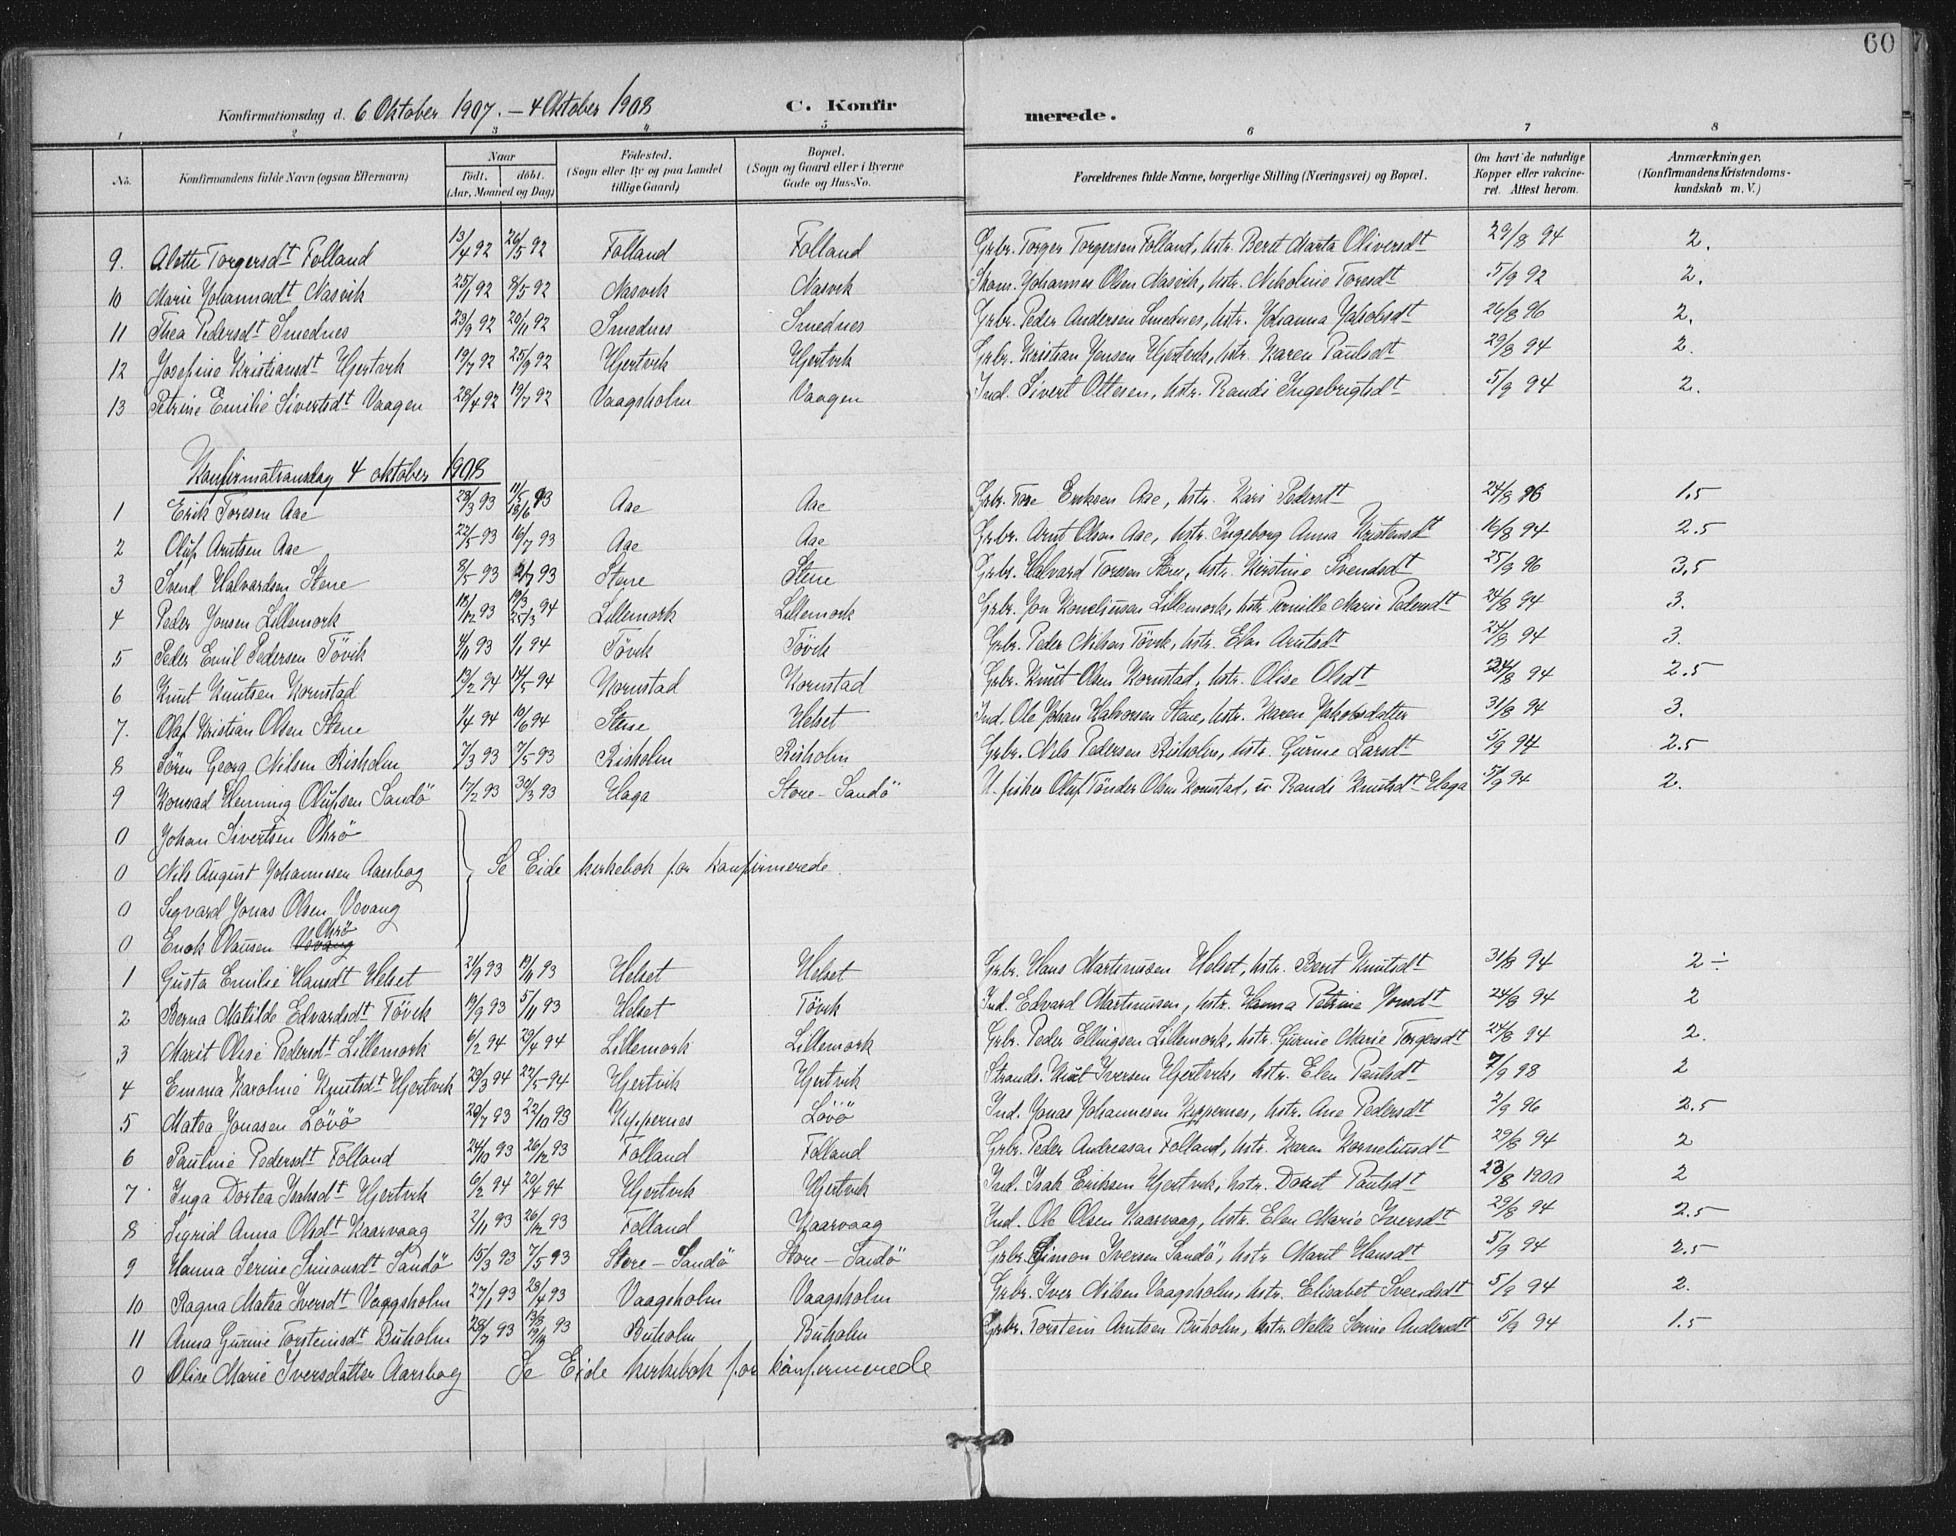 60
Konfirmationsdag d. 6 Oktober 1907. – 4 Oktober 1908 C. Konfirmerede.
1 2 3 4 5 6 7 8
No. Konfirmandens fulde Navn (ogsaa Efternavn) Naar födt. döbt. (Aar, Maaned og Dag) Födested. (Sogn eller By og paa Landet tillige Gaard) Bopæl. (Sogn og Gaard eller i Byerne Gade og Hus-No. Forældrenes fulde Navne, borgerlige Stilling (Næringsvei) og Bopæl. Om havt de naturlige Kopper eller vakcineret. Attest herom. Anmærkninger. (Konfirmandens Kristendomskundskab m. V.)
9. Alette Torgersdt Folland 13/4 92 26/5 92 Folland Folland Grbr. Torger Torgersen Folland, hstr. Berit Marta Oliversdt 29/8 94 2.
10 Marie Johannesdt Nasvik 25/1 92 8/5 92 Nasvik Nasvik Johannes Olsen Nasvik, hstr. Nikoline Toresdt 5/9 92 2.
11 Thea Pedersdt Smednes 23/9 92 20/11 92 Smednes Smednes Grbr. Peder Andersen Smednes, hstr. Johanna Jakobsdt 26/8 96 2.
12 Josefine Kristiansdt Hjertvik 19/7 92 25/9 92 Hjertvik Hjertvik Grbr. Kristian Jensen Hjertvik, hstr. Karen Paulsdt 29/8 94 2.
13 Petrine Emilie Sivertsdt Vaagen 28/4 92 19/7 92 Vaagsholm Vaagen Ind. Sivert Ottesen, hstr. Randi Ingebrigtsdt 5/9 94 2.
Konfirmationsdag 4 oktober 1908
1 Erik Toresen Aae 28/3 93 11/5 18/6 93 Aae Aae Grbr. Tore Eriksen Aae, hstr. Kari Pedersdt 24/8 96 1.5
2 Oluf Arntsen Aae 22/5 93 16/7 93 Aae Aae Grbr. Arnt Olsen Aae, hstr. Ingeborg Anna Kristensdt 16/8 94 2.5
3 Svend Halvardsen Stene 8/5 93 2/7 93 Stene Stene Grbr. Halvard Toresen Stene, hstr. Kirstine Svendsdt 25/9 96 3.5
4 Peder Jonsen Lillemork 18/12 93 19/3 25/3 94 Lillemork Lillemork Grbr. Jon Korneliussen Lillemork, hstr. Pernille Marie Pedersdt 24/8 94 3.
5 Peder Emil Pedersen Tövik 4/11 93 1/1 94 Tövik Tövik Grbr. Peder Nilsen Tövik, hstr. Elen Arntsdt 24/8 94 3.
6 Knut Knutsen Kornstad 13/2 94 14/5 94 Kornstad Kornstad Grbr. Knut Olsen Kornstad, hstr. Olise Olsdt 24/8 94 2.5
7. Olaf Kristian Olsen Stene 1/4 94 10/6 94 Stene Helset Ind. Ole Johan Halvorsen Stene, hstr. Karen Jakobsdatter 31/8 94 3.
8 Sören Georg Nilsen Risholm 7/3 93 7/5 93 Risholm Risholm Grbr. Nils Pedersen Risholm, hstr. Gurine Larsdt 5/9 94 2.5
9 Konrad Henning Olufsen Sandö 17/2 93 30/3 93 Haga Store-Sandö U. fisker Olaf Tönder Olsen Kornstad, u. Randi Knutsdt Haga 5/9 94 2.
0 Johan Sivertsen Ohrö
0 Nils August Johannesen Aarsbog Se Eide kirkebok for konfirmerede.
0 Sigvard Jonas Olsen Vevang
0 Enok Olausen Vevang Ohrö
1 Gusta Emilie Hansdt Helset 21/9 93 19/11 93 Helset Helset Grbr. Hans Martinusen Helset, hstr. Berit Knutsdt 31/8 94 2 ÷
2 Berna Matilde Edvardsdt Tövik 19/9 93 5/11 93 Helset Tövik Ind. Edvard Martinusen, hstr. Hanna Petrine Jonsdt 24/8 94 2
3 Marit Olise Pedersdt Lillemork 6/2 94 29/4 94 Lillemork Lillemork Grbr. Peder Ellingsen Lillemork, hstr. Gurine Marie Torgersdt 24/8 94 2.
4 Emma Karoline Knutsdt Hjertvik 29/3 94 27/5 94 Hjertvik Hjertvik Strands. Knut Iversen Hjertvik, hstr. Elen Paulsdt 7/9 98 2
5 Matea Jonasen Lövö 20/7 93 22/10 93 Kyppernes Lövö Ind. Jonas Johannesen Kyppernes, hstr. Ane Pedersdt 2/9 96 2.5
6 Pauline Pedersdt Folland 24/10 93 26/12 93 Folland Folland Grbr. Peder Andreasen Folland, hstr. Karen Korneliusdt 29/8 94 2
7. Inga Dortea Isaksdt Hjertvik 6/2 94 20/4 94 Hjertvik Hjertvik Ind. Isak Eriksen Hjertvik, hstr. Doret Paulsdt 23/8 1900 2
8 Sigrid Anna Olsdt Kaarvaag 2/11 93 26/12 93 Folland Kaarvaag Ind. Ole Olsen Kaarvaag, hstr. Elen Marie Iversdt 29/8 94 2.5
9 Hanna Serine Simonsdt Sandö 15/3 93 7/5 93 Store-Sandö Store-Sandö Grbr. Simon Iversen Sandö, hstr. Marit Hansdt 5/9 94 2.5
10 Ragna Matea Iversdt Vaagsholm 27/1 93 23/4 93 Vaagsholm Vaagsholm Grbr. Iver Nilsen Vaagsholm, hstr. Elisabet Svendsdt 5/9 94 2.
11 Anna Gurine Torsteinsdt Buholm 28/7 93 93 Buholm Buholm Grbr. Torstein Arntsen Buholm, hstr. Nella Serine Andersdt 5/9 94 1.5
0 Olise Marie Iversdatter Aarsbog Se Eide kirkebok for konfirmerede